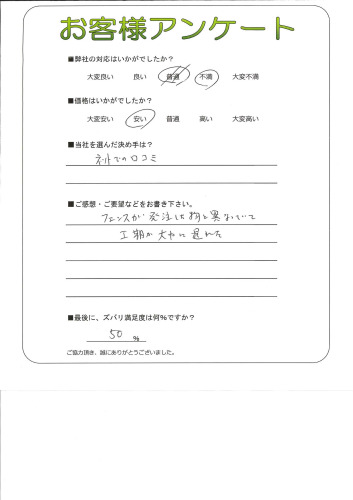 お客様アンケート
■弊社の対応はいかがでしたか?
大変良い 良い 普通 不満 大変不満
■価格はいかがでしたか?
大変安い 安い 普通 高い 大変高い
■当社を選んだ決め手は?
ネットでの口コミ
■ご感想・ご要望などをお書き下さい。
フェンスが発注した物と異なっていて
工期が大やに遅れた
■最後に、ズバリ満足度は何%ですか?
50 %
ご協力頂き、誠にありがとうございました。